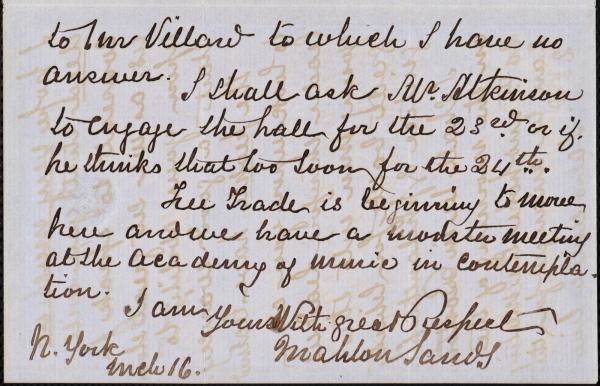 to Mr Villard to which I have no
answer.
I shall ask Mr. Atkinson
to engage the hall for the 23rd. or if
he thinks that too soon for the 24th.
Free Trade is beginning to move
here and we have a monster meeting
at the Academy of music in contempla-
tion.
I am
Yours With great Respect
Mahlon Sands
N. York
Mch 16.